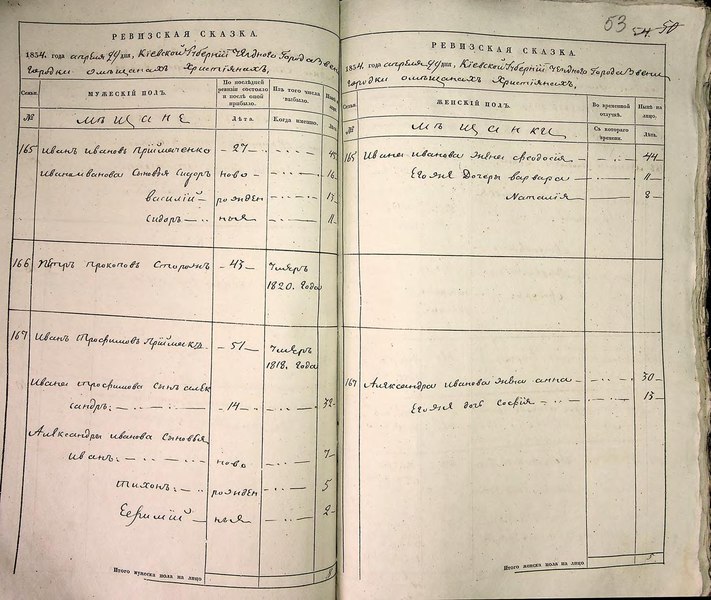 РЕВИЗСКАЯ СКАЗКА.
1834. года апреля дня, Кіевской Губерніи Уезднаго Города Звени
городки омещанахъ Христіянахъ,
Семьи.
МУЖЕСКІЙ ПОЛЪ.
По последней ревизіи состояло и после оной прибыло.
Изъ того числа выбыло.
Ныне на лицо.
№
Мъщане
Лѣта.
Когда именно.
165 Иванъ Ивановъ Приймаченко - 27 -
Ивана Иванова сыновья Сидоръ ново 16
Василий - рожден 13
Сидоръ - ныя 11
166 Петръ Прокоповъ - 43 - Умеръ
1820. Года
167 Иванъ Трофимовъ - 51 - Умеръ
1818. Года
Ивана Трофимова сынъ Алек
сандръ - 14 - 32
Александры Иванова сыновья
Иванъ ново 7
Тихонъ рожден 5
Ефимій ныя 2
Итого мужеска пола на лицо 8
53 50
РЕВИЗСКАЯ СКАЗКА.
1834. года апреля дня, Кіевской Губерніи Уезднаго Города Звени
городки омещанахъ Христіянахъ,
Семьи.
ЖЕНСКІЙ ПОЛЪ.
Во временной отлучке.
Ныне на лицо.
№
Мъщанки
Съ котораго времени.
Лѣта.
165 Ивана Иванова жена Феодосія 44
Его же дочери Варвара 11
Наталія 8
167 Александра Иванова жена Анна 30
Его же дочь Софія 13
Итого женска пола на лицо 5